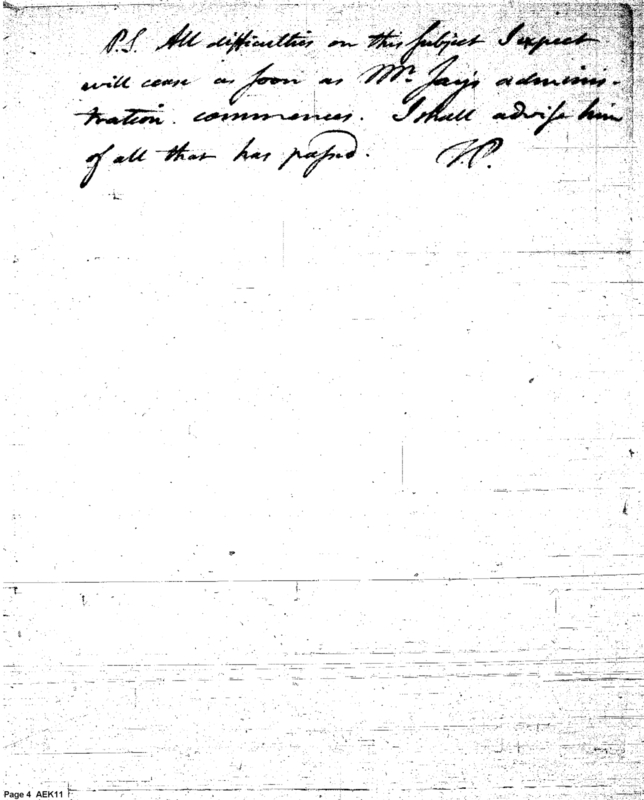 P.S. All difficulties on this subject I expect
will cease as soon as Mr. Jays adminis-
tration commences. I shall advise him
of all that has passed.
Page 4 AEK11